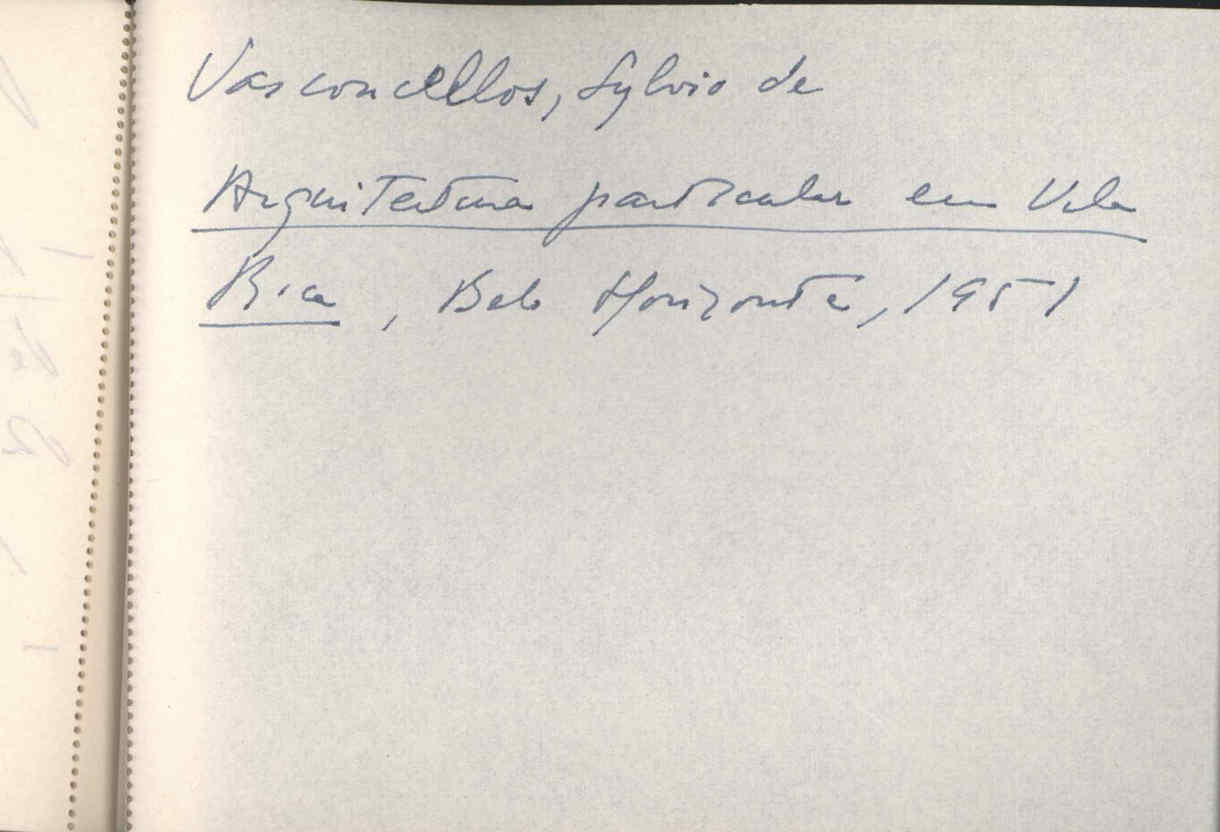 Vasconcellos, Sylvio de
Arquitectura particular em Vila
Rica, Belo Horizonte, 1951